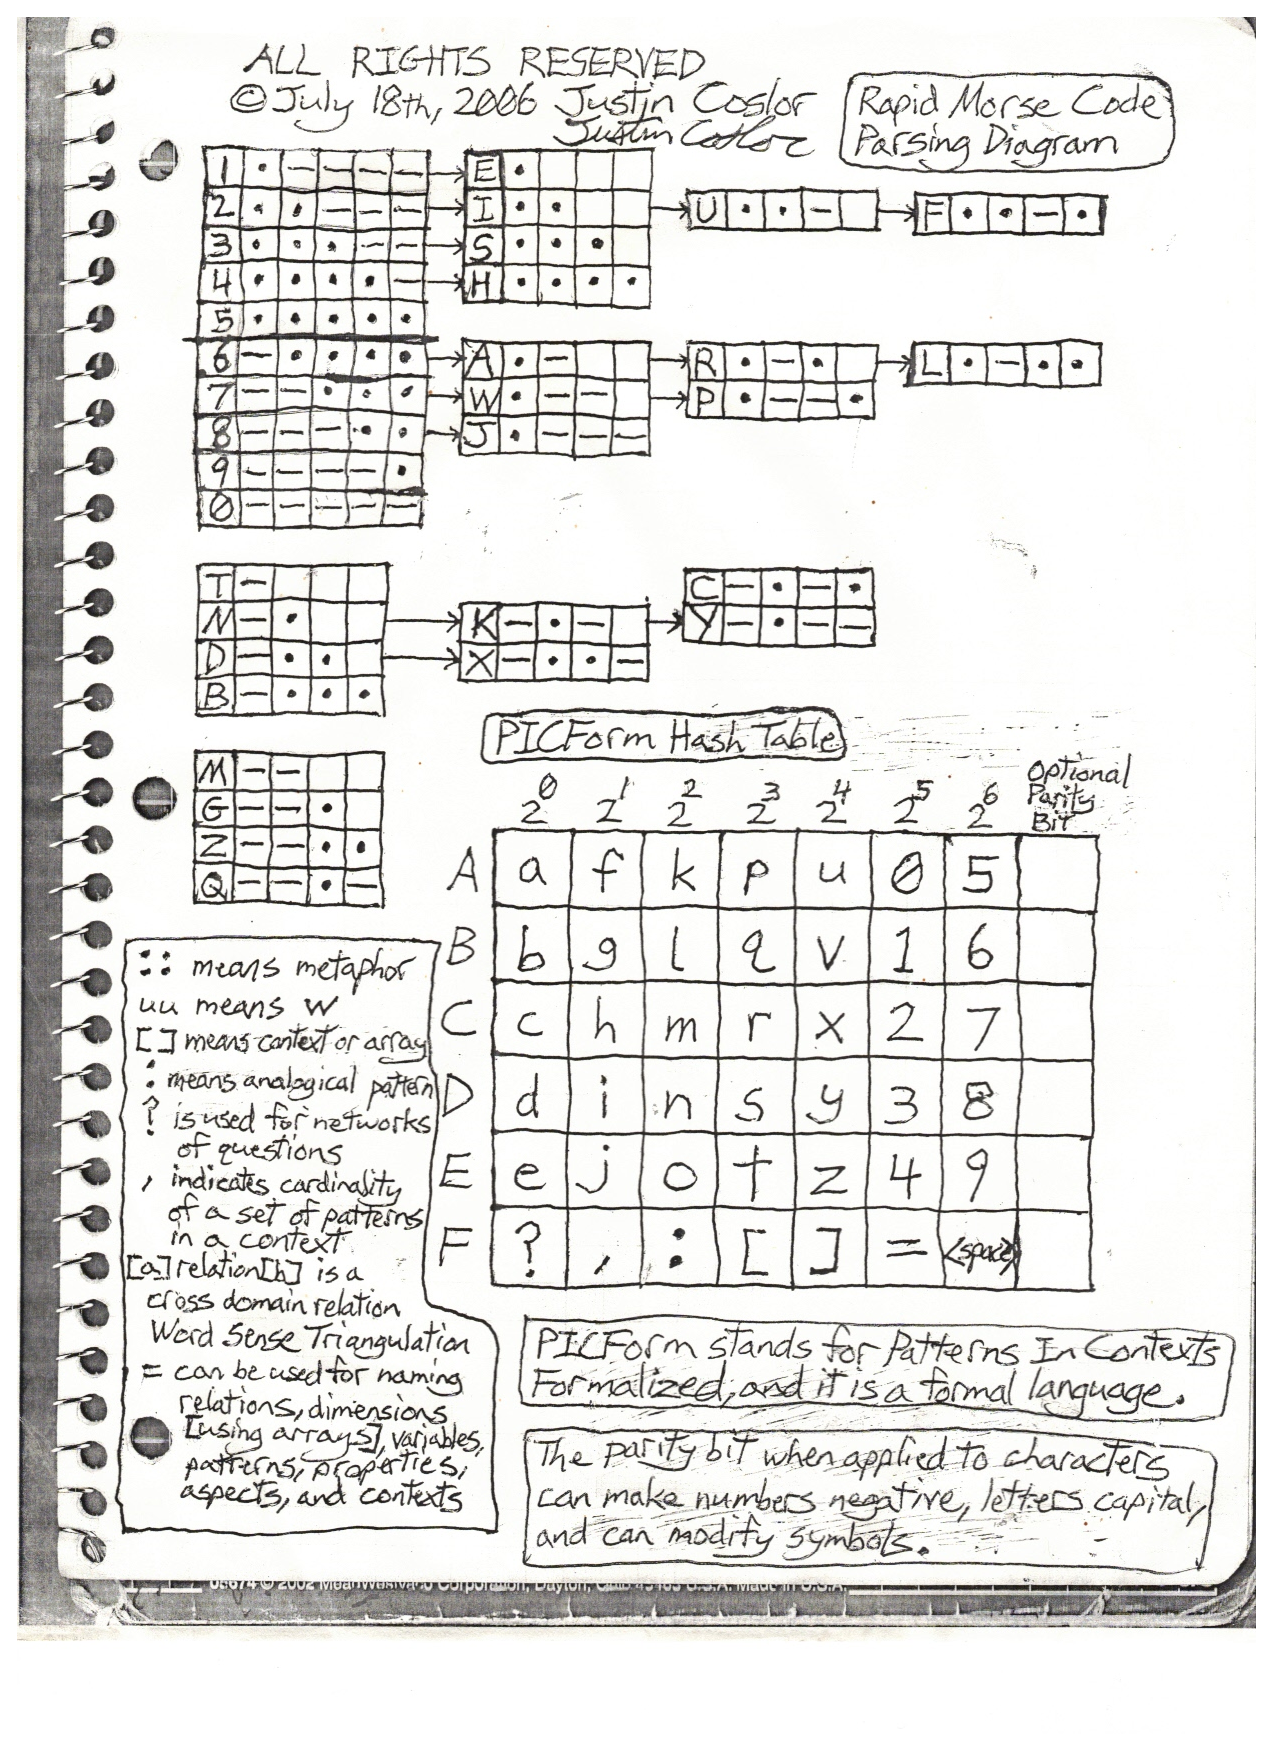 ALL RIGHTS RESERVED
© July 18th, 2006 Justin Coslor
Justin Coslor
Rapid Morse Code
Parsing Diagram
1 • — — — —
2 • • — — —
3 • • • — —
4 • • • • —
5 • • • • •
6 — • • • •
7 — — • • •
8 — — — • •
9 — — — — •
0 — — — — —
E •
I • •
S • • •
H • • • •
U • • —
F • • — •
A • —
W • — —
J • — — —
R • — •
P • — — •
L • — • •
T —
N — •
D — • •
B — • • •
K — • —
X — • • —
C — • — •
Y — • — —
M — —
G — — •
Z — — • •
Q — — • —
PICForm Hash Table
2⁰ 2¹ 2² 2³ 2⁴ 2⁵ 2⁶ Optional
Parity
Bit
A a f k p u 0 5
B b g l q v 1 6
C c h m r x 2 7
D d i n s y 3 8
E e j o t z 4 9
F ? , : [ ] = <space>
:: means metaphor
uu means w
[ ] means context or array
: means analogical pattern
? is used for networks
of questions
, indicates cardinality
of a set of patterns
in a context
[a] relation [b] is a
cross domain relation
Word Sense Triangulation
= can be used for naming
relations, dimensions
[using arrays], variables,
patterns, properties,
aspects, and contexts
PICForm stands for Patterns In Contexts
Formalized, and it is a formal language.
The parity bit when applied to characters
can make numbers negative, letters capital,
and can modify symbols.
05674 © 2002 MeadWestvaco Corporation, Dayton, Ohio 45463 U.S.A. Made in U.S.A.